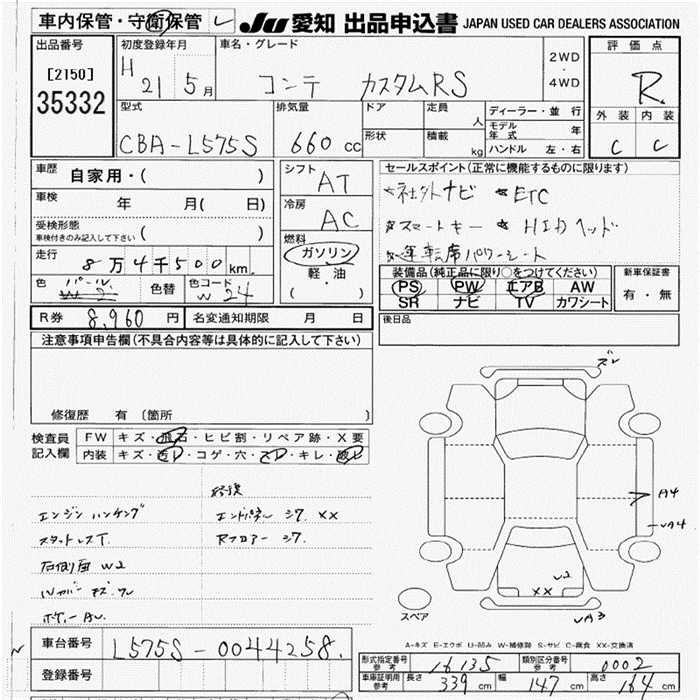 車内保管・守衛保管 レ JU 愛知 出品申込書 JAPAN USED CAR DEALERS ASSOCIATION
出品番号 初度登録年月 車名・グレード 2WD ・ 4WD 評価点
[2150] H 21 5月 コンテ カスタムRS R
35332
型式 排気量 ドア 定員 人 ディーラー・並行 外装 内装
CBA-L575S 660 cc 形状 積載 kg モデル年式 年 C C
ハンドル 左・右
車歴 自家用・( ) シフト AT セールスポイント(正常に機能するものに限ります)
車検 年 月( 日) 冷房 AC ☆社外ナビ ☆ETC
受検形態 車検付きのみ記入して下さい ( ) ☆スマートキー ☆HIDヘッド
走行 8万4千500km 燃料 ガソリン ☆運転席パワーシート
軽・油
( )
色 パール W2 色替 色コード W24
装備品(純正品に限り○をつけてください) 新車保証書
PS PW エアB AW 有・無
SR ナビ TV カワシート
R券 8,960円 名変通知期限 月 日 後日品
注意事項申告欄(不具合内容等は具体的に記入して下さい)
修復歴 有 〔箇所 〕
検査員記入欄 FW キズ・飛石・ヒビ割・リペア跡・X要
内装 キズ・・コゲ・穴・・キレ・
修復
エンジンハンチング エンドパネル シワ XX
スタットレスT. Rフロアー シワ.
右側面 W2
キズ
ズレ
A4
A4
XX
A3
スペア
A-キズ E-エクボ U-凹み W-補修跡 S-サビ C-腐食 XX-交換済
車台番号 L575S-0044258.
登録番号
形式指定番号 参考 16135 類別区分番号 参考 0002
車庫証明用 参考 長さ 339 cm 幅 147 cm 高さ 164 cm